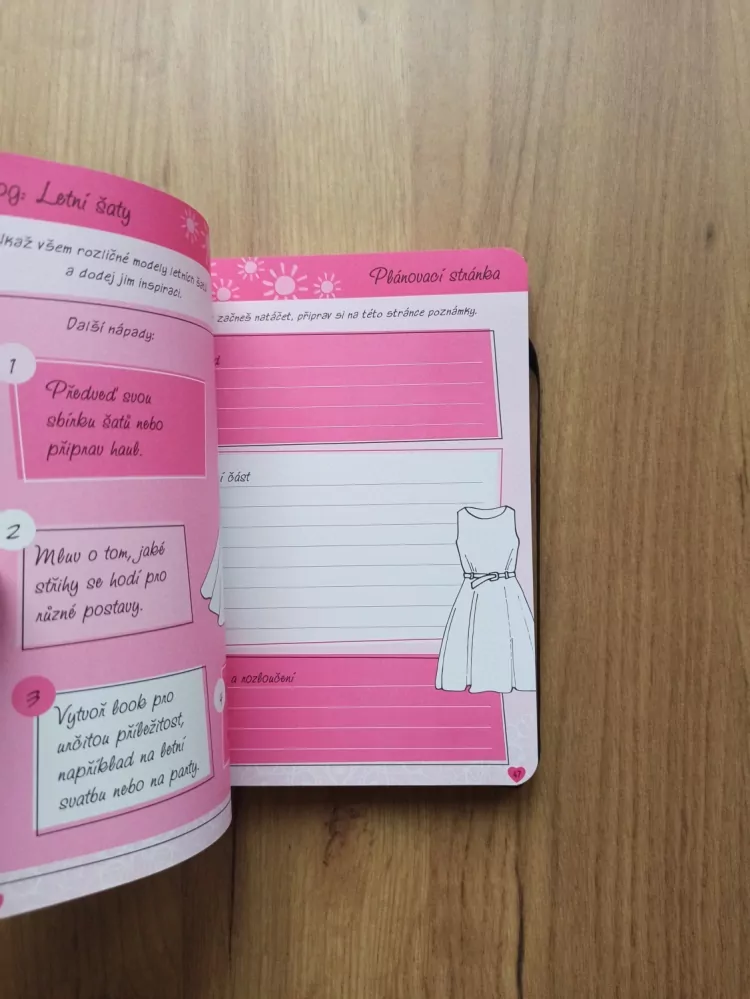 Letní šaty
všem rozličné modely letních
a dodej jim inspiraci.
Další nápady:
1
Předveď svou
sbírku šatů nebo
připrav haul.
2
Mluv o tom, jaké
střihy se hodí pro
různé postavy.
3
Vytvoř look pro
určitou příležitost,
například na letní
svatbu nebo na party.
Plánovací stránka
začneš natáčet, připrav si na této stránce poznámky.
část
a rozloučení
47